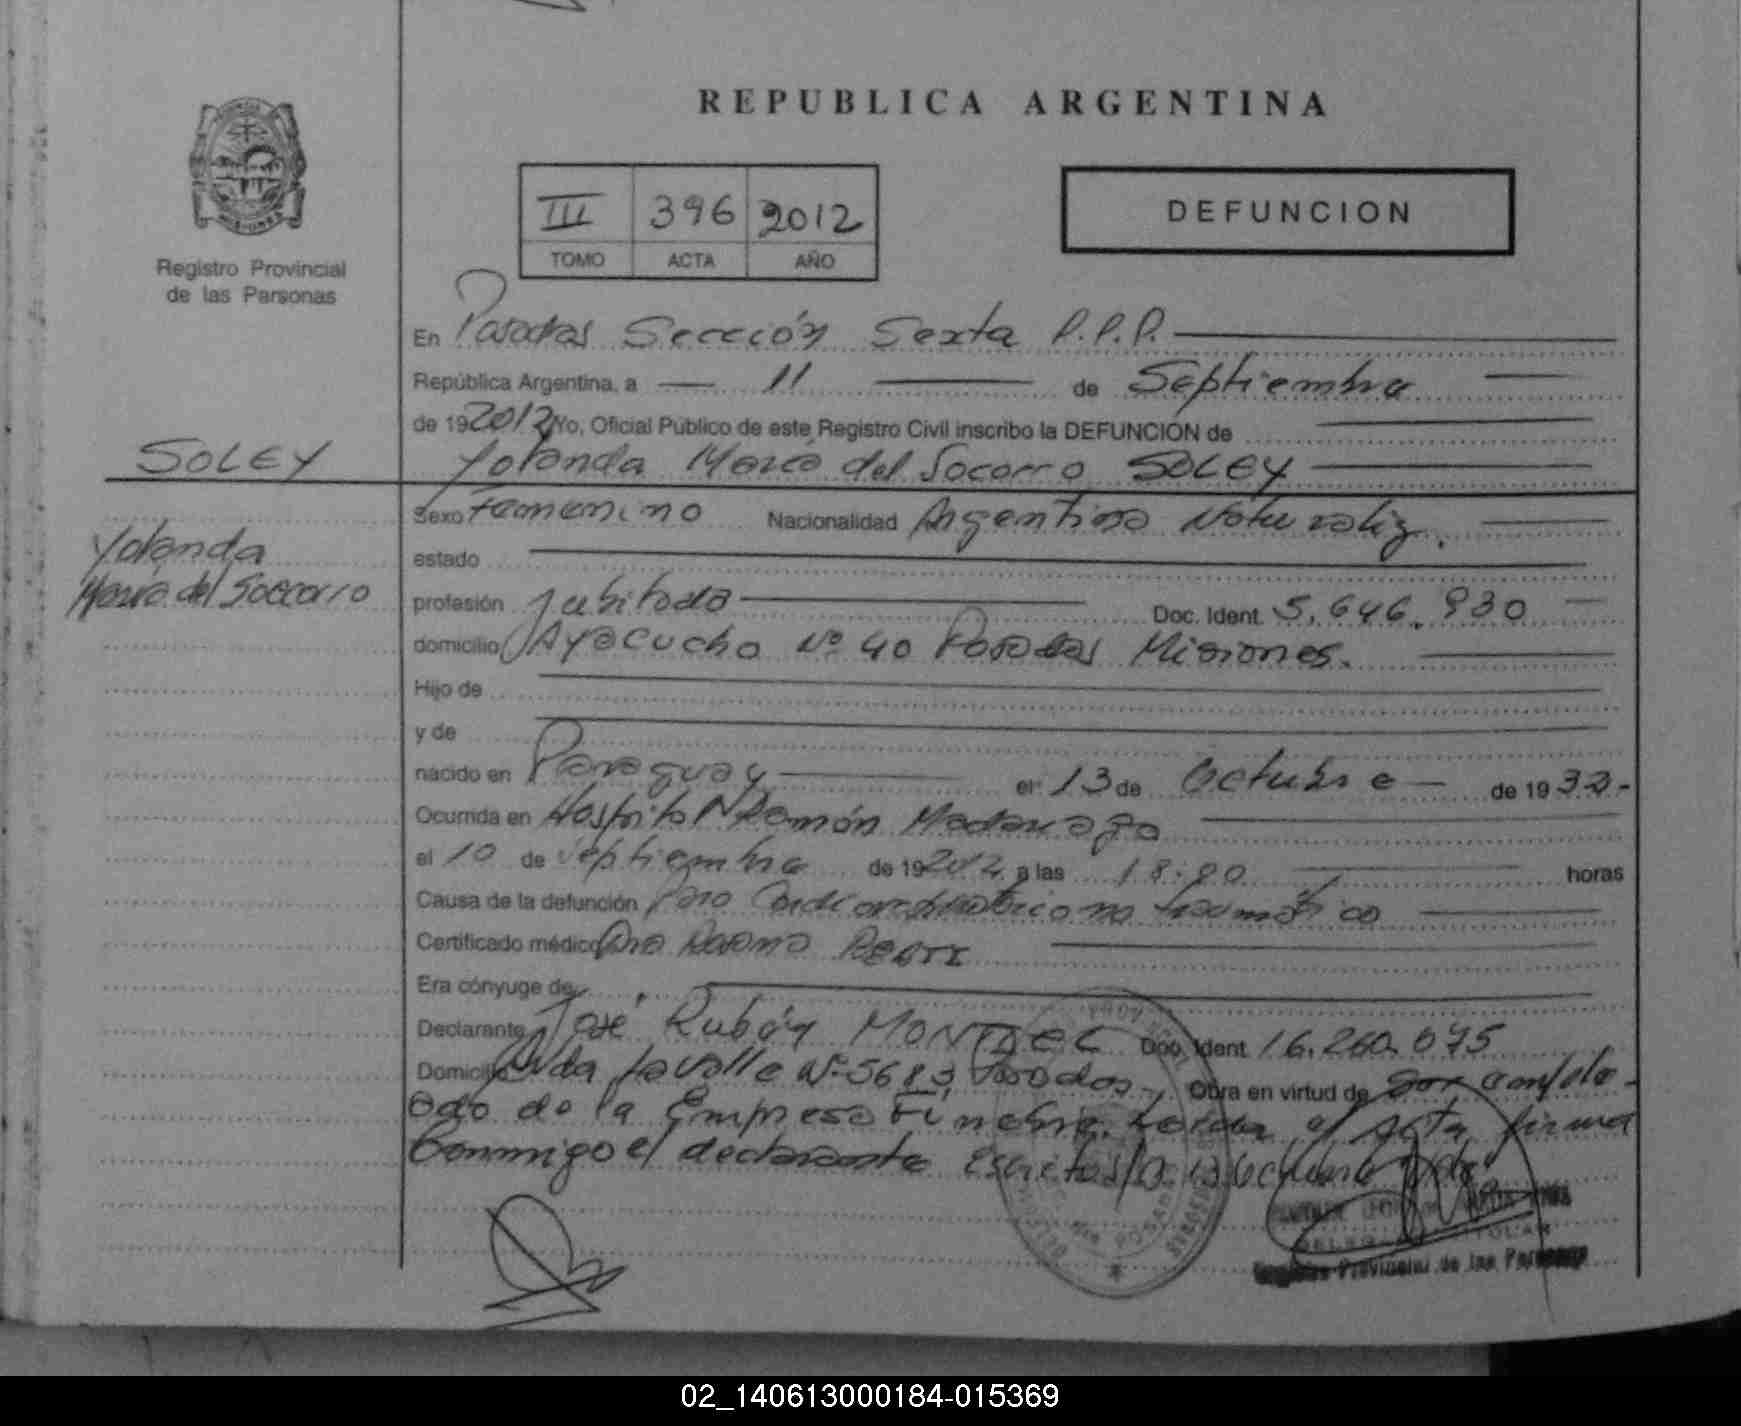 REPUBLICA ARGENTINA
III 396 2012
TOMO ACTA AÑO
DEFUNCION
Registro Provincial
de las Personas
En Posadas Sección Sexta P.P.P.
República Argentina, a 11 de Septiembre
de 19 2012 Yo, Oficial Público de este Registro Civil inscribo la DEFUNCION de
SOLEY
Yolanda María del Socorro SOLEY
Yolanda
María del Soccorro
Sexo Femenino Nacionalidad Argentina Naturaliz.
estado
profesión Jubilada Doc. Ident. 5.646.930
domicilio Ayacucho Nº 40 Posadas Misiones.
Hijo de
y de
nacido en Paraguay el 13 de Octubre de 19 33.-
Ocurrida en Hospital Ramón Madariaga
el 10 de septiembre de 19 2012 a las 18:00 horas
Causa de la defunción Paro Cardiorespiratorio no traumático
Certificado médico Dra
Era cónyuge de
Declarante José Rubén MONTIEL Doc. Ident. 16.260.075
Domicilio Avda Lavalle Nº 5683, Posadas, Obra en virtud de ser emplea-
ado de la Empresa Fúnebre. Leída el Acta, firma
Conmigo el declarante
POSADAS
Registro Provincial de las Personas
02_140613000184-015369